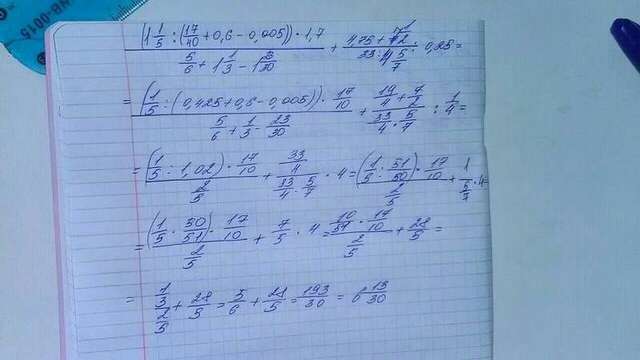 ((1 1/5 : (17/40 + 0,6 − 0,005)) · 1,7) / (5/6 + 1 1/3 − 1 23/30) + (4,75 + 7 1/2) / (33 : 4 5/7) : 0,25 =
= ((1/5 : (0,425+0,6−0,005)) · 17/10) / (5/6 + 1/3 − 23/30) + (19/4 + 7/2) / (33/4 · 5/7) : 1/4 =
= ((1/5 : 1,02) · 17/10) / (2/5) + (33/4) / (33/4 · 5/7) · 4 = ((1/5 : 51/50) · 17/10) / (2/5) + 1 / (5/7) · 4
= ((1/5 · 50/51) · 17/10) / (2/5) + 7/5 · 4 = (10/51 · 17/10) / (2/5) + 28/5 =
= (1/3) / (2/5) + 28/5 = 5/6 + 28/5 = 193/30 = 6 13/30